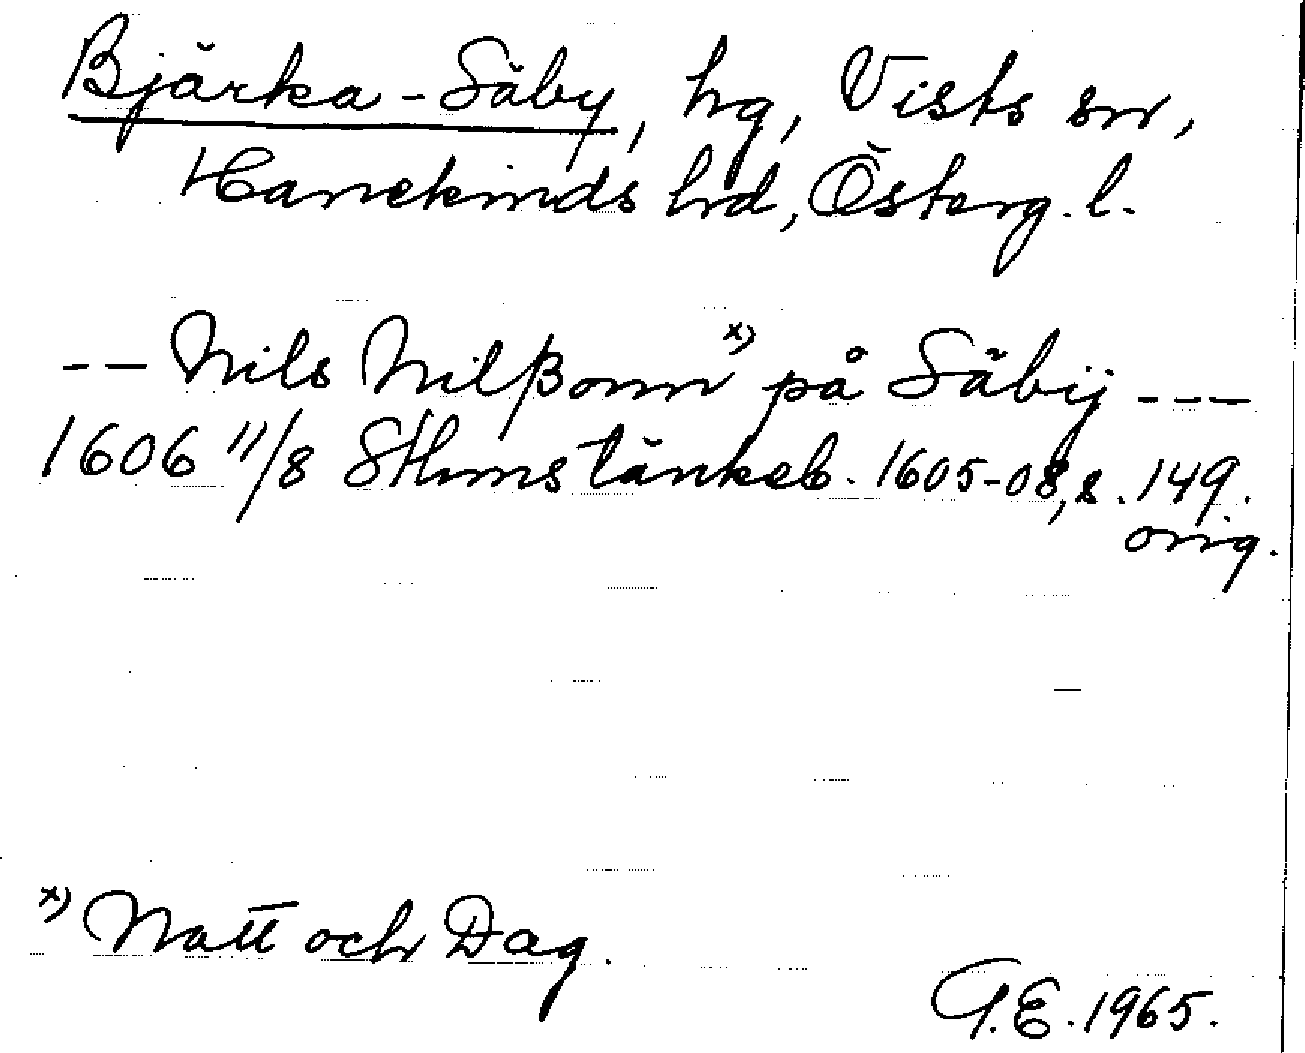 Bjärka-Säby, hg, Vists sn,
Hanekinds hrd, Österg. l.
-- Nils Nilßonn x) på Säbÿ ---
1606 11/8 Sthms tänkeb. 1605-08, s. 149.
orig.
x) Natt och Dag.
G.E. 1965.